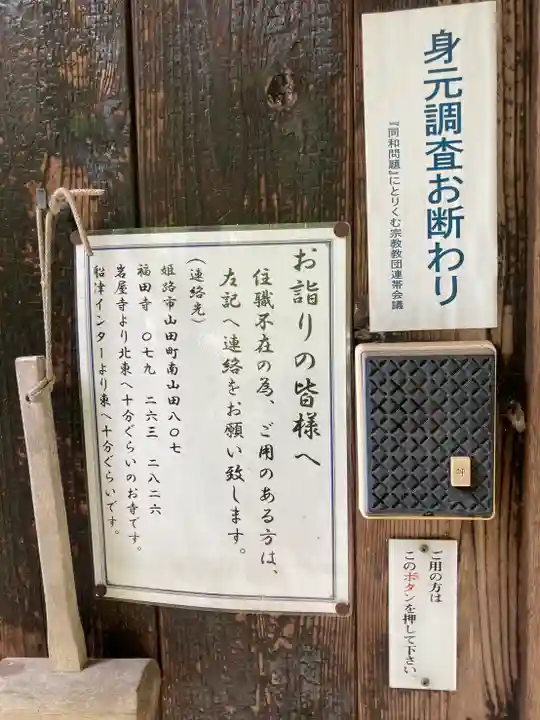 身元調査お断わり
『同和問題』にとりくむ宗教教団連帯会議
お詣りの皆様へ
住職不在の為、ご用のある方は、
左記へ連絡をお願い致します。
(連絡先)
姫路市山田町南山田八〇七
福田寺 〇七九 二六三 二八二六
岩屋寺より北東へ十分ぐらいのお寺です。
船津インターより東へ十分ぐらいです。
ご用の方は
このボタンを押して下さい